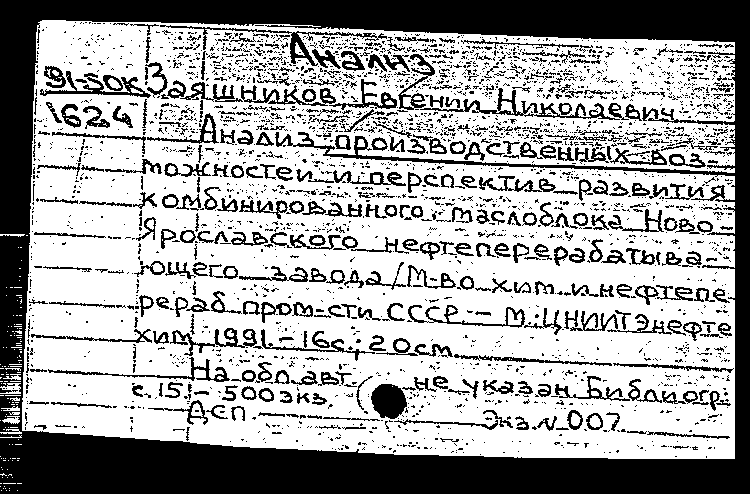 Анализ
91-50К Заяшников, Евгений Николаевич
1624
Анализ производственных воз-
можностей и перспектив развития
комбинированного маслоблока Ново-
Ярославского нефтеперерабатыва-
ющего завода/М-во хим. и нефтепе-
рераб. пром-сти СССР.– М.:ЦНИИТЭнефте
хим, 1991.–16с.; 20см.
На обл. авт. не указан. Библиогр.:
с. 15.– 500экз.
ДСП. Экз.№007